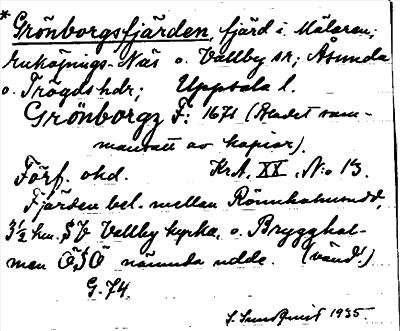 * Grönborgsfjärden, fjärd i Mälaren;
Enköpings-Näs o. Vallby sr; Åsunda
o. Trögds hdr; Uppsala l.
Grönborgz F: 1671 (Bladet sam-
mansatt av kopior).
Förf. okd. KrA, XX, No 13.
Fjärden bel. mellan Rönnholmsudd,
3½ km. SV Vallby kyrka, o. Brygghol-
men ÖSÖ nämnda udde. (vänd!)
G. 74.
S. Sundquist 1935.